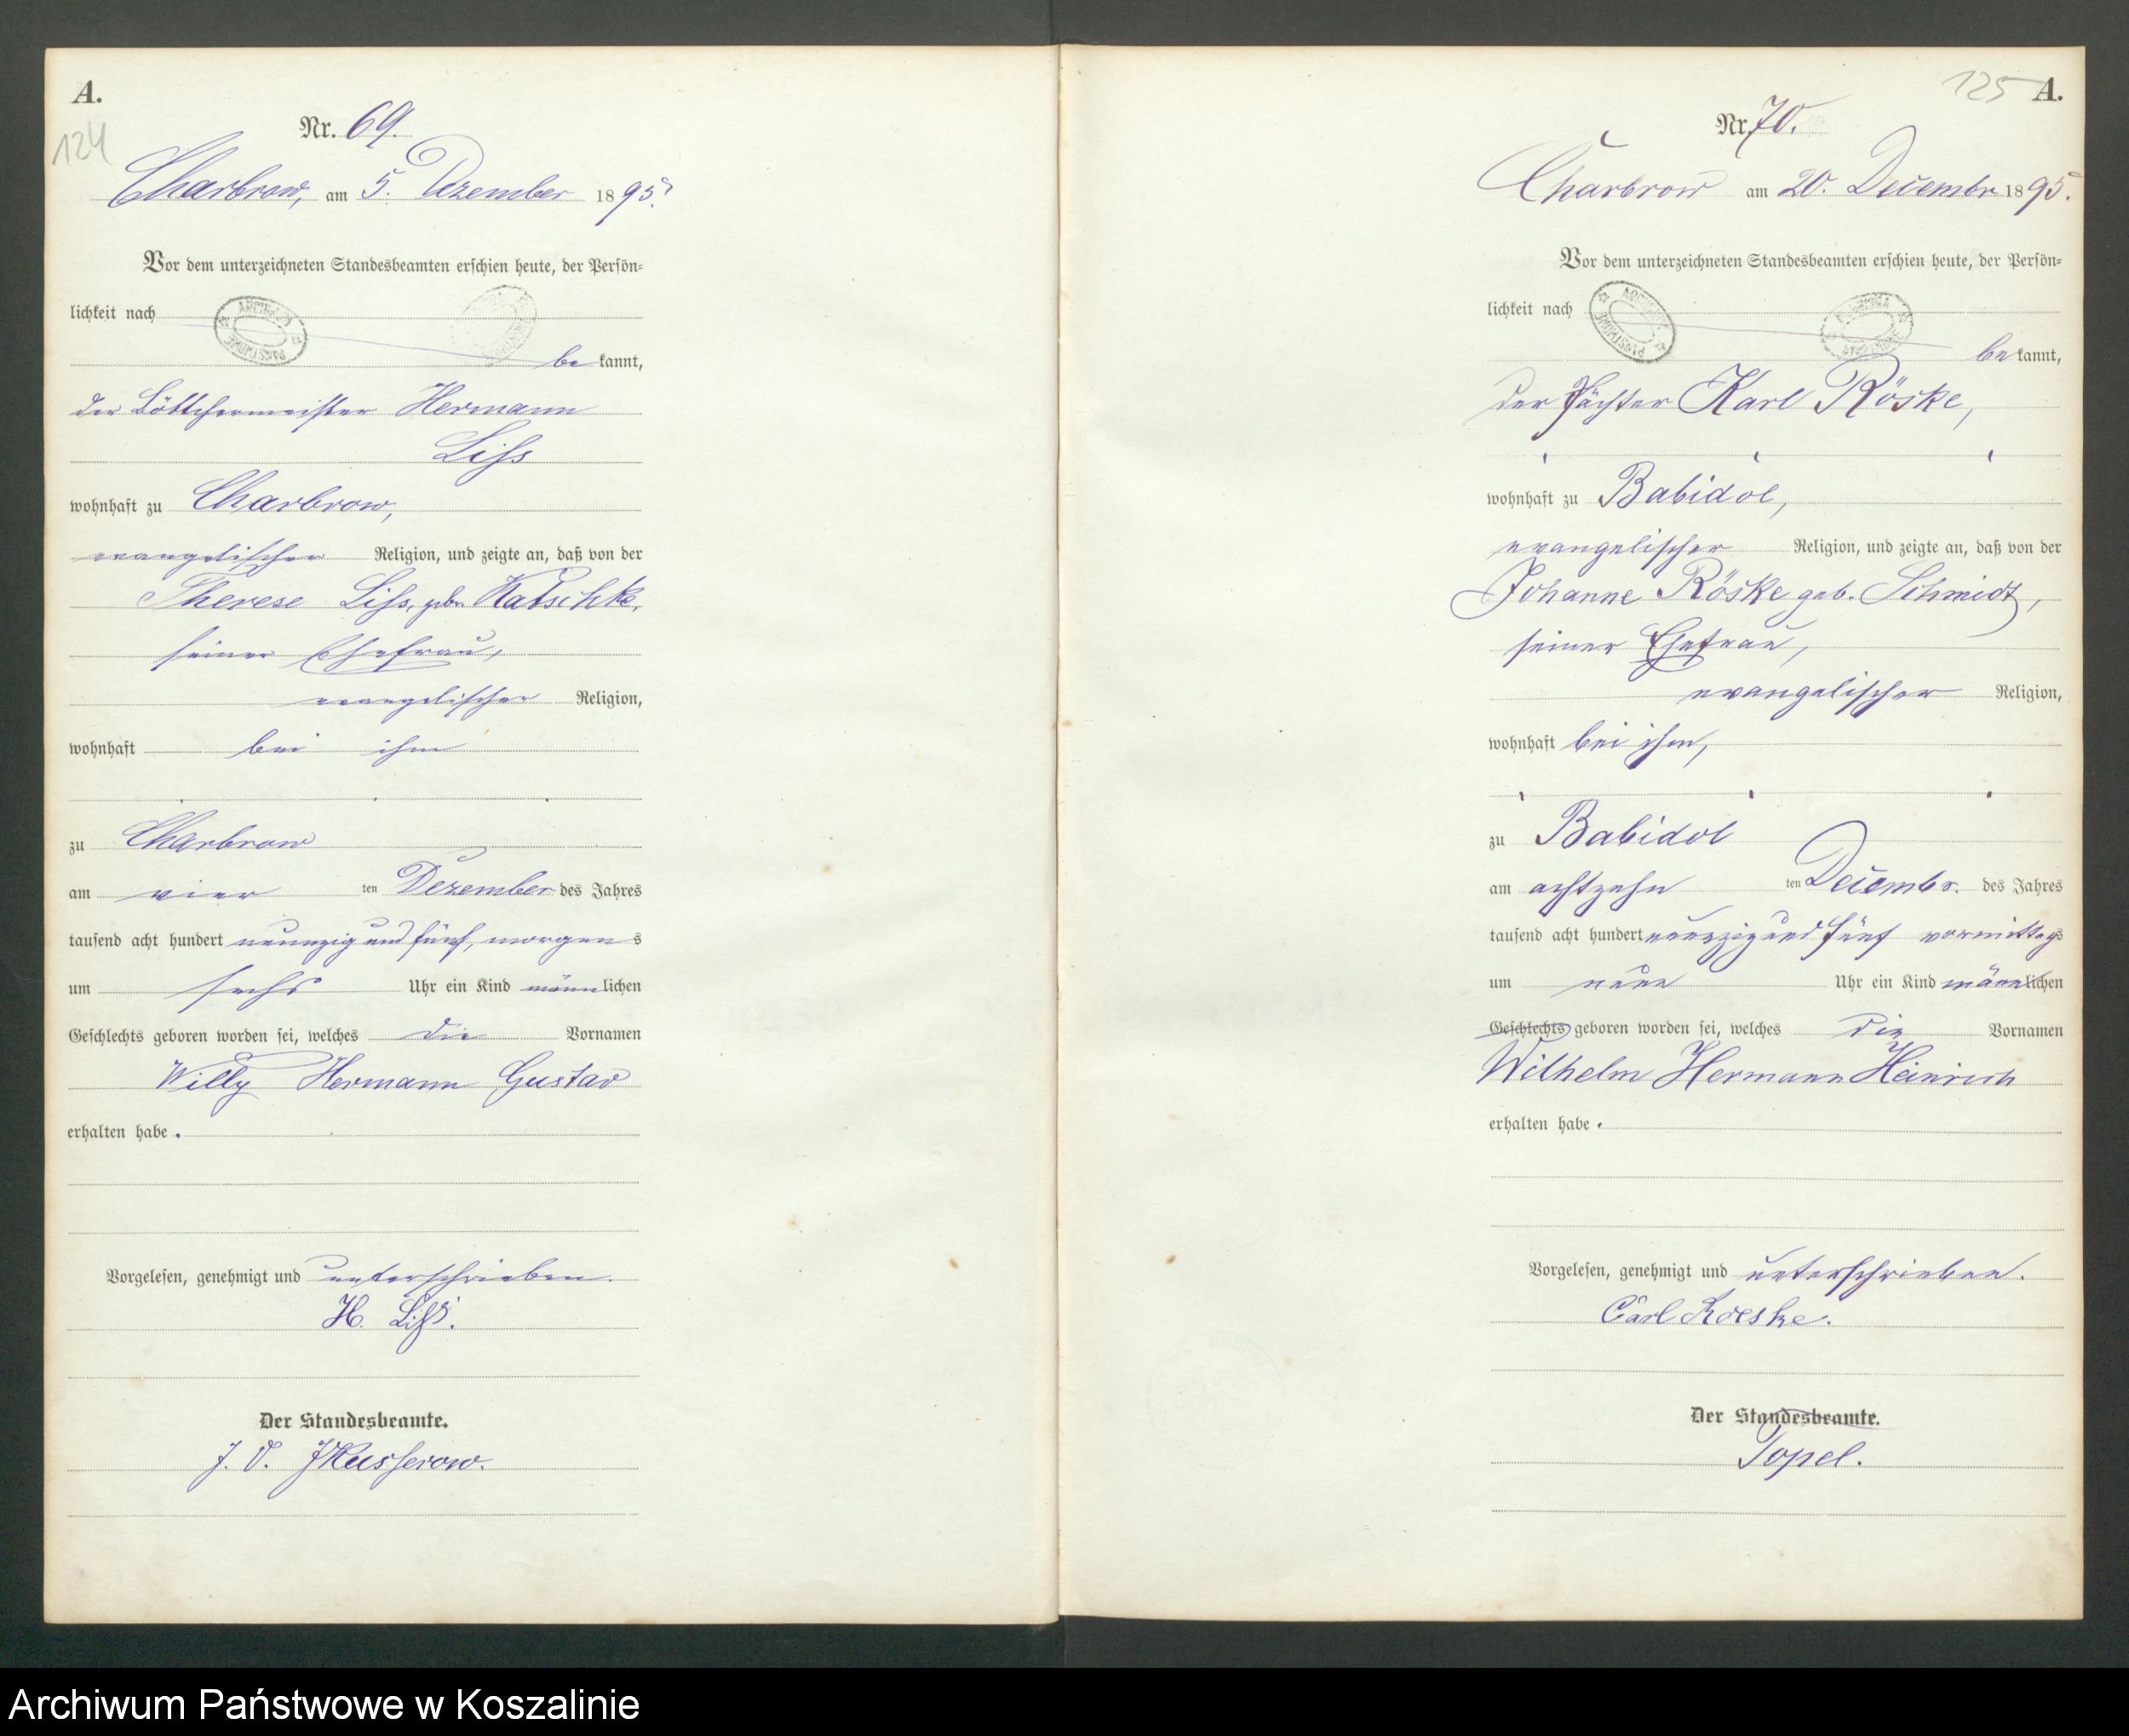 A.
124
Nr. 69.
Charbrow, am 5. Dezember 1895.
Vor dem unterzeichneten Standesbeamten erschien heute, der Persön=
lichkeit nach
be kannt,
der Böttchermeister Hermann
Liss
wohnhaft zu Charbrow,
evangelischer Religion, und zeigte an, daß von der
Therese Liss, gebr. Katschke,
seiner Ehefrau,
evangelischer Religion,
wohnhaft bei ihm
zu Charbrow
am vier ten Dezember des Jahres
tausend acht hundert neunzig und fünf, morgens
um sechs Uhr ein Kind männlichen
Geschlechts geboren worden sei, welches die Vornamen
Willy Hermann Gustav
erhalten habe.
Vorgelesen, genehmigt und unterschrieben.
H. Liss.
Der Standesbeamte.
J. V. Kusserow.
125 A.
Nr. 70.
Charbrow am 20. Decembr 1895.
Vor dem unterzeichneten Standesbeamten erschien heute, der Persön=
lichkeit nach
be kannt,
der Pächter Karl Röske,
wohnhaft zu Babidol,
evangelischer Religion, und zeigte an, daß von der
Johanne Röske geb. Schmidt,
seiner Ehefrau,
evangelischer Religion,
wohnhaft bei ihm,
zu Babidol
am achtzehn ten Decembr. des Jahres
tausend acht hundert neunzig und fünf vormittags
um neun Uhr ein Kind männlichen
Geschlechts geboren worden sei, welches die Vornamen
Wilhelm Hermann Heinrich
erhalten habe.
Vorgelesen, genehmigt und unterschrieben.
Carl Roeske.
Der Standesbeamte.
Topel.
Archiwum Państwowe w Koszalinie